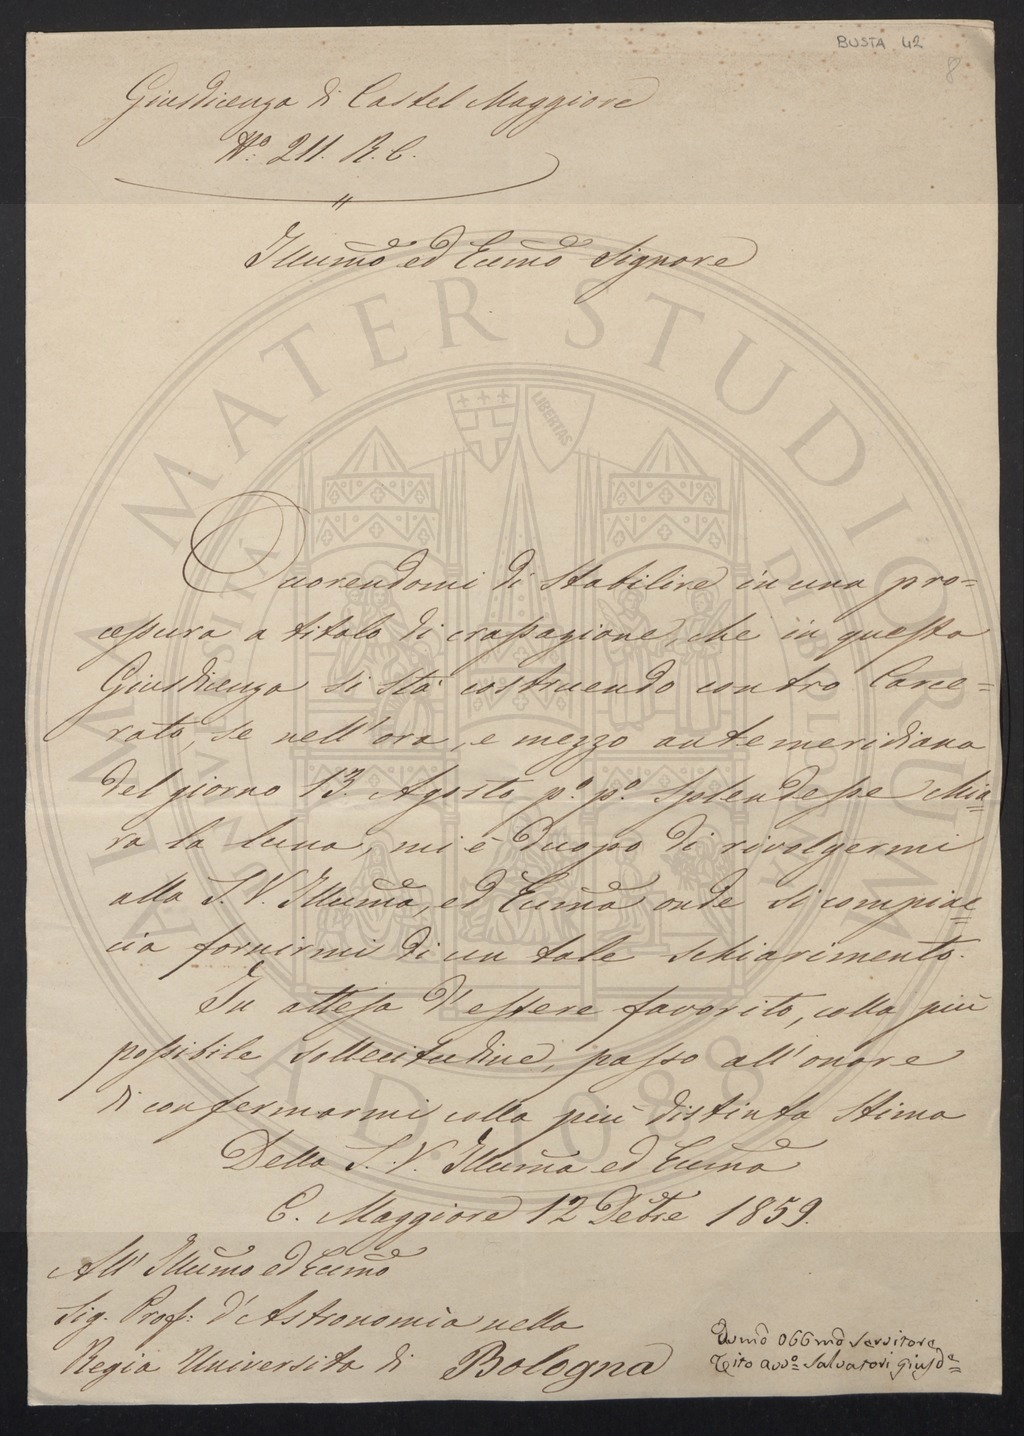 BUSTA 42
8
Giusdicenza di Castel Maggiore
N.o 211. R. C.
Illumo ed Eccmo Signore
Occorrendomi di stabilire in una pro=
cessura a titolo di crassazione, che in questa
Giusdicenza si stà costruendo contro Carce=
rato, se nell'ora, e mezzo antemeridiana
del giorno 13. Agosto p.o p.o splendesse chia=
ra la luna, mi è duopo di rivolgermi
alla S. V. Illuma, ed Eccma onde si compiac=
cia fornirmi di un tale schiarimento.
In attesa d'essere favorito, colla più
possibile sollecitudine, passo all'onore
di confermarmi colla più distinta stima
Della S. V. Illuma ed Eccma
C. Maggiore 12 Dcbre 1859.
All' Illumo ed Eccmo
Sig. Prof: d'Astronomia nella
Regia Università di Bologna
Dvmo Obbmo Servitore
Tito Avvo Salvatori Giusde
ALMA MATER STUDIORUM
LIBERTAS
A.D. 1088